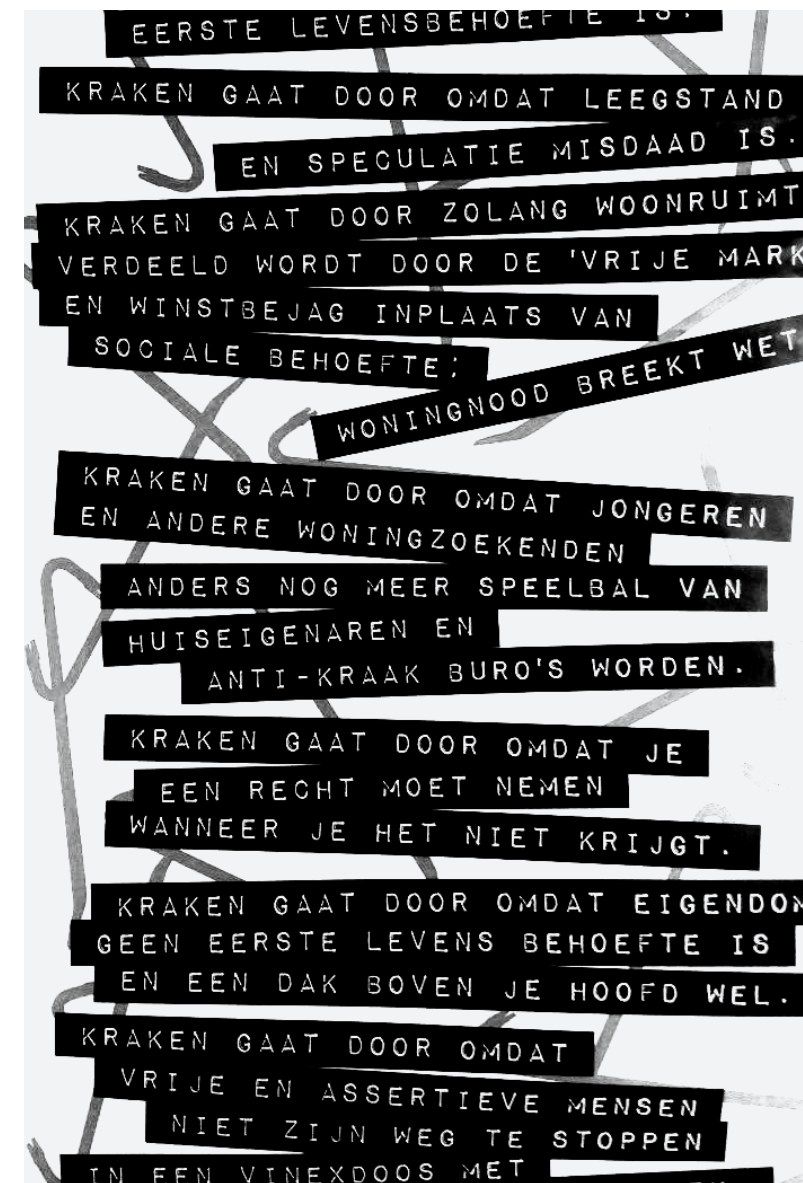 EERSTE LEVENSBEHOEFTE IS.
KRAKEN GAAT DOOR OMDAT LEEGSTAND
EN SPECULATIE MISDAAD IS.
KRAKEN GAAT DOOR ZOLANG WOONRUIMT
VERDEELD WORDT DOOR DE 'VRIJE MARK
EN WINSTBEJAG INPLAATS VAN
SOCIALE BEHOEFTE:
WONINGNOOD BREEKT WET
KRAKEN GAAT DOOR OMDAT JONGEREN
EN ANDERE WONINGZOEKENDEN
ANDERS NOG MEER SPEELBAL VAN
HUISEIGENAREN EN
ANTI-KRAAK BURO'S WORDEN.
KRAKEN GAAT DOOR OMDAT JE
EEN RECHT MOET NEMEN
WANNEER JE HET NIET KRIJGT.
KRAKEN GAAT DOOR OMDAT EIGENDOM
GEEN EERSTE LEVENS BEHOEFTE IS
EN EEN DAK BOVEN JE HOOFD WEL.
KRAKEN GAAT DOOR OMDAT
VRIJE EN ASSERTIEVE MENSEN
NIET ZIJN WEG TE STOPPEN
IN EEN VINEXDOOS MET